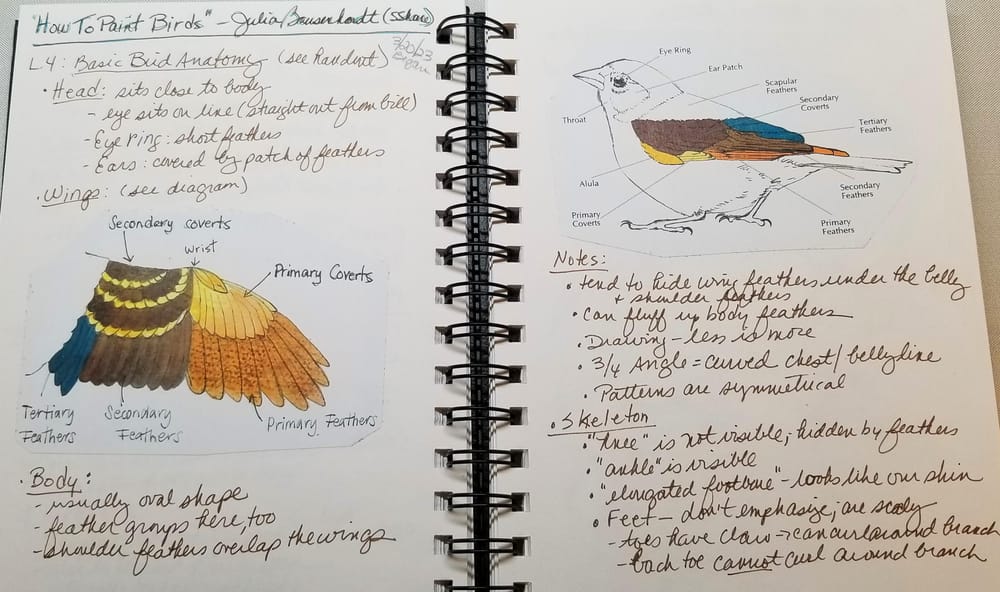 "How To Paint Birds" - Julia Bausenhardt (SShare)
3/20/23
L4: Basic Bird Anatomy (see Handout)
• Head: sits close to body
- eye sits on line (straight out from bill)
- Eye ring: short feathers
- Ears: covered by patch of feathers
• Wings: (see diagram)
Secondary coverts
wrist
Primary Coverts
Tertiary Feathers
Secondary Feathers
Primary Feathers
• Body:
- usually oval shape
- feather groups here, too
- shoulder feathers overlap the wings
Eye Ring
Ear Patch
Scapular Feathers
Secondary Coverts
Throat
Tertiary Feathers
Alula
Secondary Feathers
Primary Coverts
Primary Feathers
Notes:
• tend to hide wing feathers under the belly
+ shoulder feathers
• Can fluff up body feathers
• Drawing - less is more
• 3/4 Angle = curved chest/bellyline
• Patterns are symmetrical
• Skeleton
• "knee" is not visible; hidden by feathers
• "ankle" is visible
• "elongated footbone" - looks like our shin
• Feet - don't emphasize; are scaly
- toes have claws → can curl around branch
- back toe cannot curl around branch